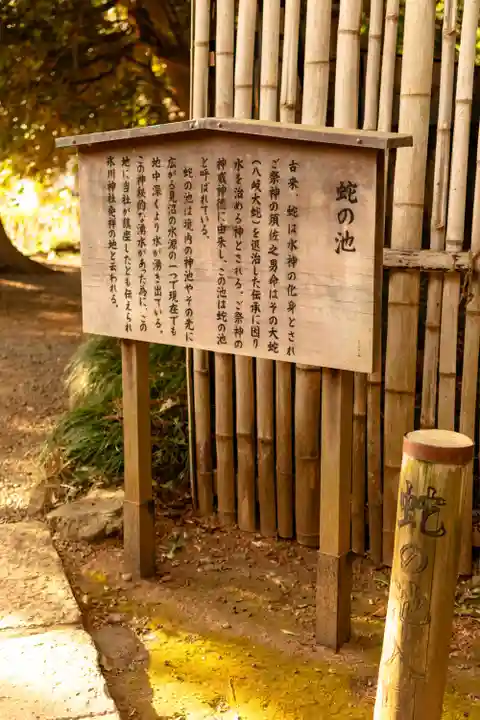 蛇の池
古来、蛇は水神の化身とされ
ご祭神の須佐之男命はその大蛇
（八岐大蛇）を退治した伝承に因り
水を治める神とされる。ご祭神の
神威神徳に由来し、この池は蛇の池
と呼ばれている。
蛇の池は境内の神池やその先に
広がる見沼の水源の一つで現在でも
地中深くより水が湧き出ている。
この神秘的な湧水があった為に、この
地に当社が鎮座したとも伝えられ
氷川神社発祥の地と云われる。
蛇の池